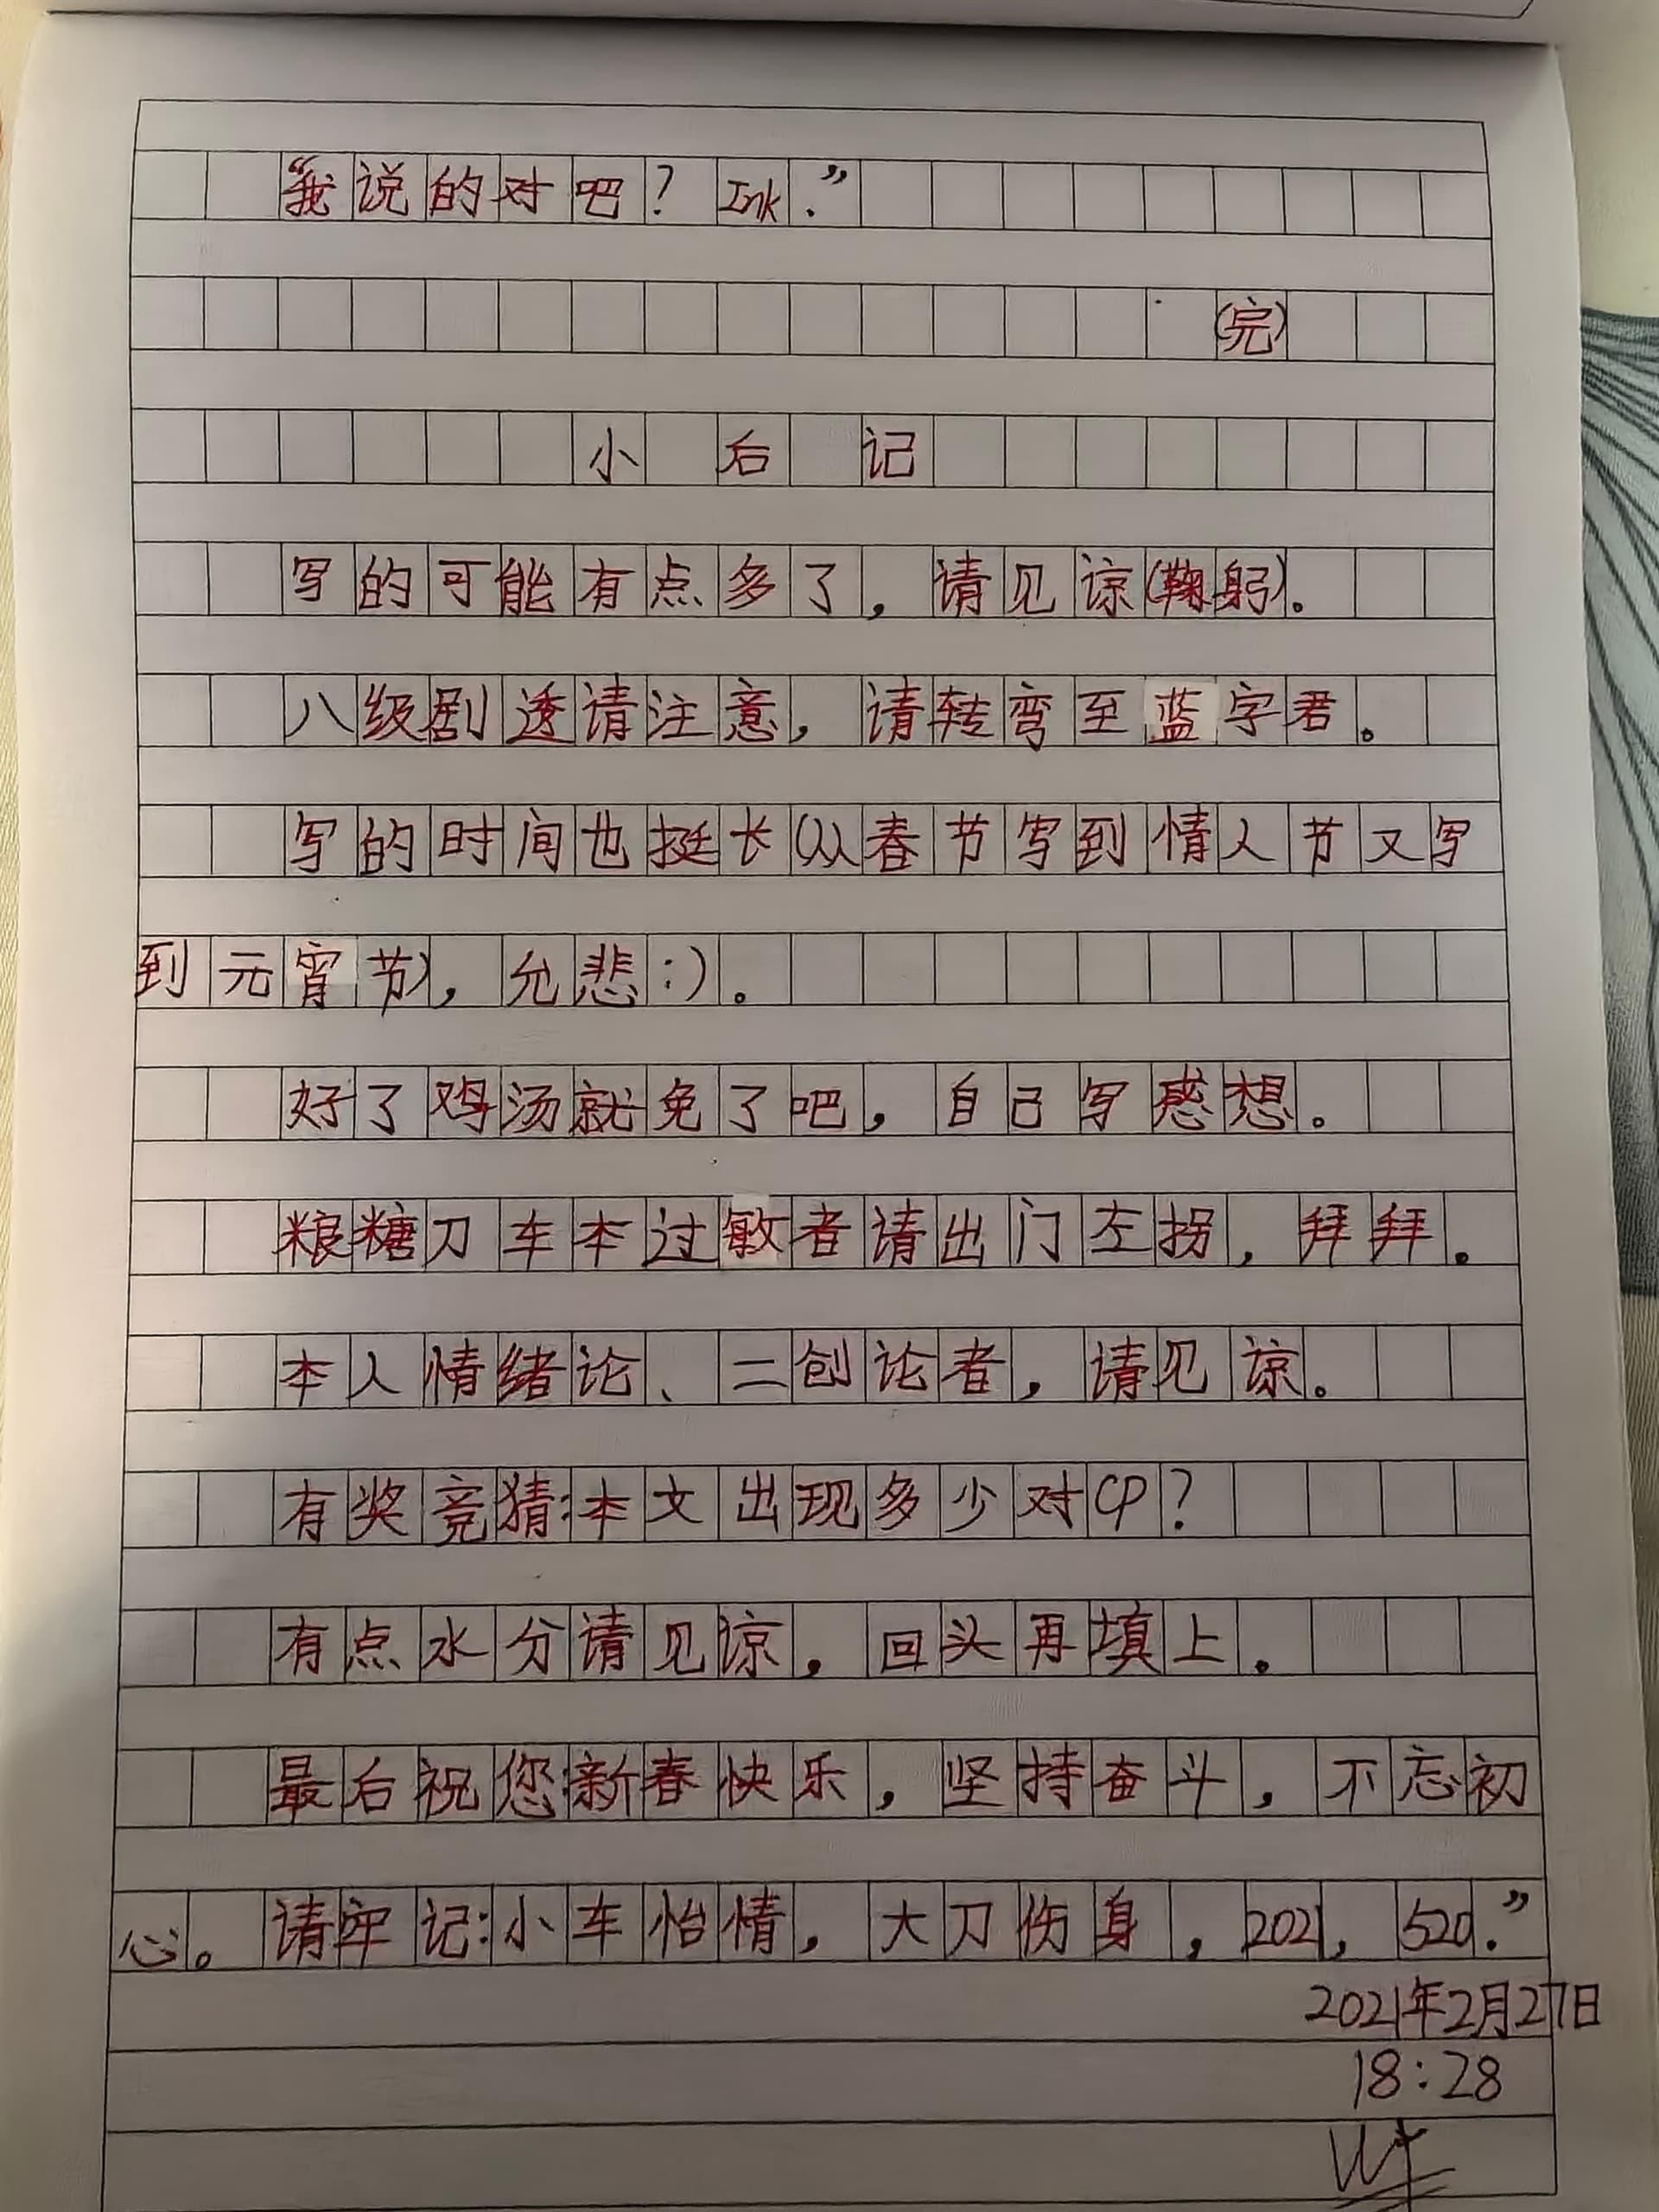 “我说的对吧？Ink.”
(完)
小后记
写的可能有点多了，请见谅(鞠躬)。
八级剧透请注意，请转弯至蓝字君。
写的时间也挺长(从春节写到情人节又写
到元宵节)，允悲:)。
好了鸡汤就免了吧，自己写感想。
粮糖刀车本过敏者请出门左拐，拜拜。
本人情绪论、二创论者，请见谅。
有奖竞猜:本文出现多少对CP？
有点水分请见谅，回头再填上。
最后祝您新春快乐，坚持奋斗，不忘初
心。请牢记:小车怡情，大刀伤身，2021，520.”
2021年2月27日
18:28